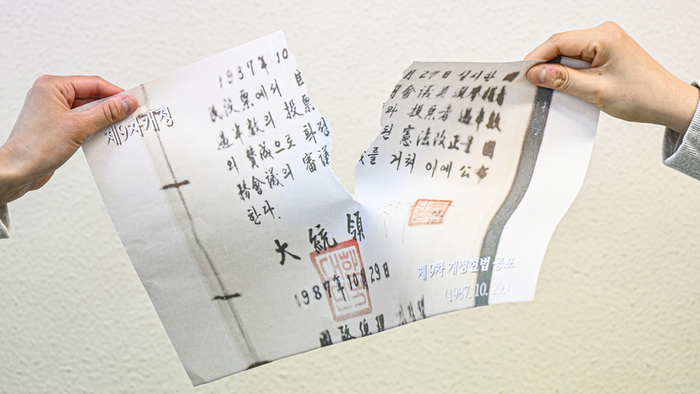 제9차개정
1987年 10月 27日 실시한 國
民投票에서 國會議員選擧權者
過半數의 投票와 投票者 過半數
의 贊成으로 확정된 憲法改正을 國
務會議의 審議를 거쳐 이에 公布
한다.
大統領
1987年 10月 29日
國務總理
제9차 개정헌법 공포
(1987. 10. 29.)